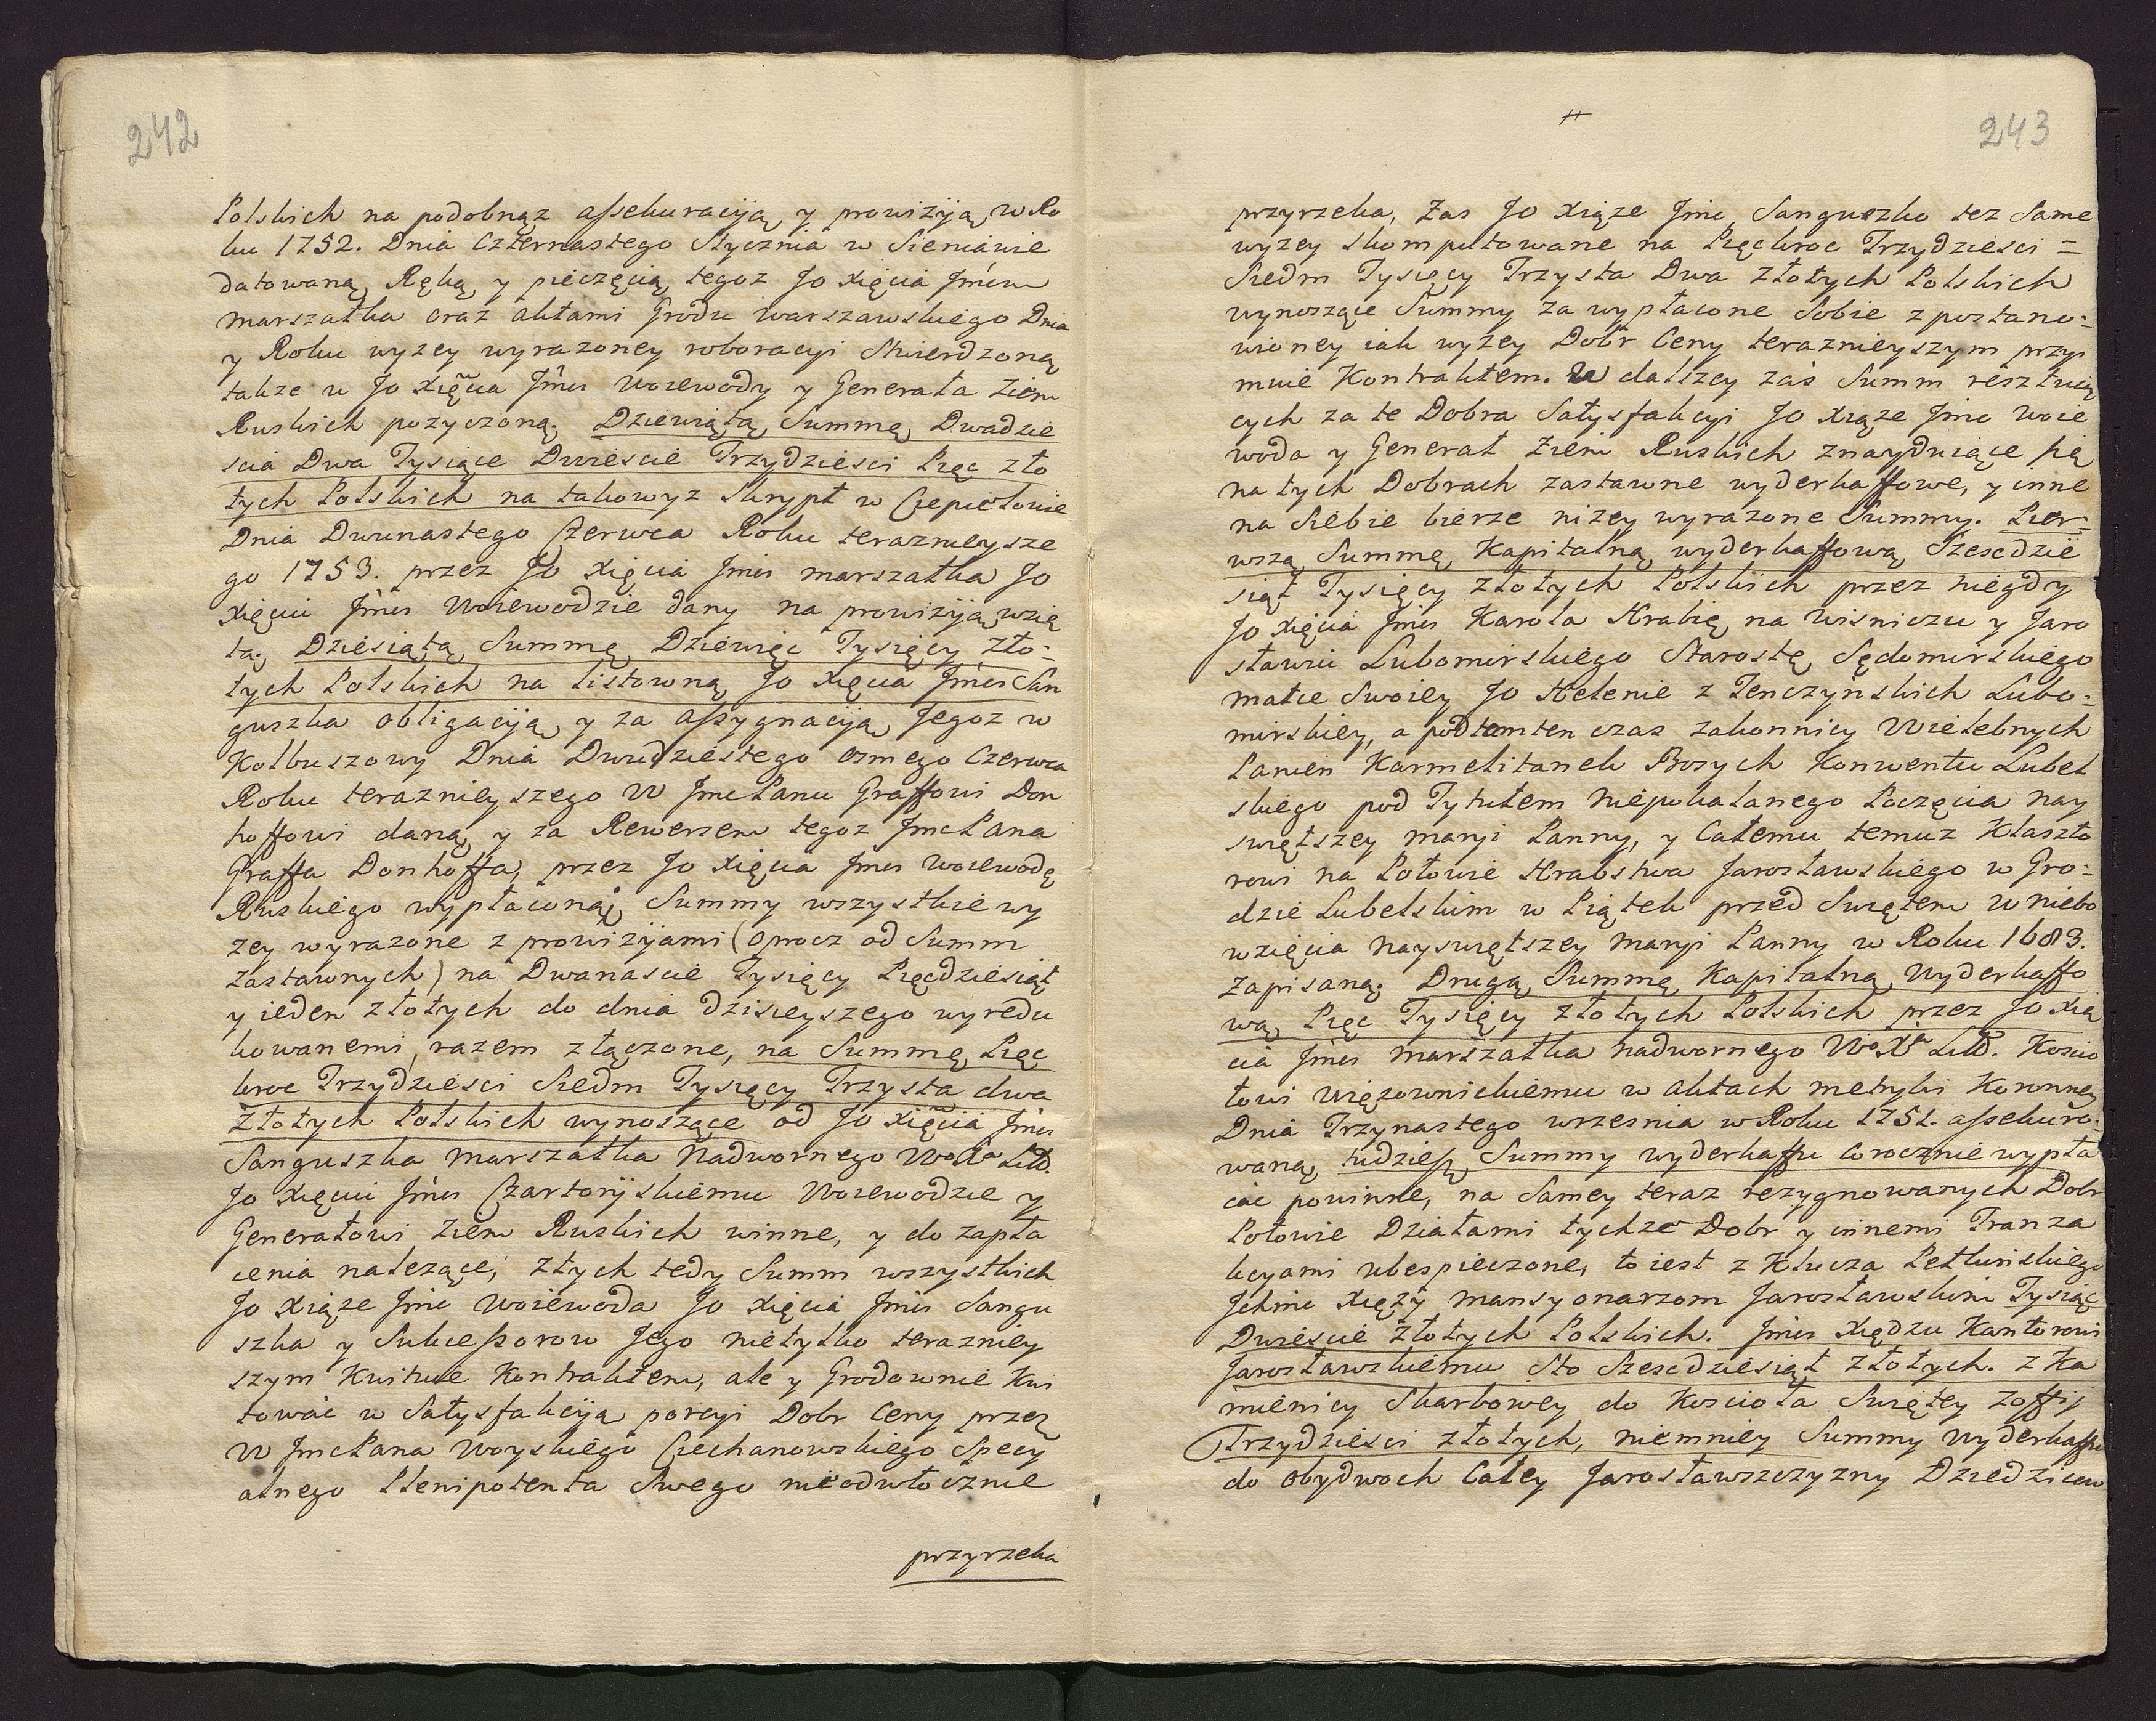 242
Polskich na podobnąz assekuracyią, y prowizyią, w Ro
ku 1752. Dnia Czternastego Stycznia w Sieniawie
datowaną, Ręką, y pieczęcią, tegoz Jo Xięcia Jmci
marszałka oraz aktami Grodu warszawskiego Dnia
y Roku wyzey wyrazoney roboracyi stwierdzoną
takze u Jo Xięcia Jmci Woiewody y Generała Ziem
Ruskich pozyczoną. Dziewiątą, Summę, Dwadzie
scia Dwa Tysiące Dwiescie Trzydziesci Pięc zło
tych Polskich na takowyz Skrypt w Ciepielowie
Dnia Dwunastego Czerwca Roku teraznieysze
go 1753. przez Jo Xięcia Jmci marszałka Jo
Xięciu Jmci Woiewodzie dany na prowizyią, wzię
tą. Dziesiątą Summę Dziewięc Tysięcy zło=
tych Polskich na listowną Jo Xięcia Jmci San
guszka obligacyią, y za assygnacyią, Jegoz w
Kolbuszowy Dnia Dwudziestego osmego Czerwca
Roku teraznieyszego W JmcPanu Graffowi Don
hoffowi daną, y za Rewersem tegoz JmcPana
Graffa Donhoffa, przez Jo Xięcia Jmci Woiewodę
Ruskiego wypłaconą; Summy wszystkie wy
zey wyrazone z prowizyiami (oprocz od Summ
zastawnych) na Dwanascie Tysięcy Pięcdziesiąt
y ieden złotych do dnia dzisieyszego wyredu
kowanemi, razem złączone, na Summę, Pięc
kroc Trzydziesci Siedm Tysięcy Trzysta dwa
złotych Polskich wynoszące od Jo Xięcia Jmci
Sanguszka marszałka Nadwornego WoXa Litt.
Jo Xięciu Jmci Czartoryskiemu Woiewodzie y
Generałowi Ziem Ruskich winne, y do zapła
cenia nalezące, z tych tedy Summ wszystkich
Jo Xiąze Jmc Woiewoda Jo Xięcia Jmci Sangu
szka y Sukcessorow Jego nietylko teraznieÿ
szym Kwituie Kontraktem, ale y Grodownie Kwi
towac w Satysfakcyią porcyi Dobr Ceny przez
W JmcPana Woyskiego Ciechanowskiego Specy
alnego Plenipotenta Swego nieodwłocznie
przyrzeka
243
przyrzeka, Zas Jo Xiąze Jmc Sanguszko tez Same
wyzey skomputowane na Pięckroc Trzydziesci =
Siedm Tysięcy Trzysta Dwa złotych Polskich
wynoszące Summy za wypłacone Sobie z postano=
wioney iak wyzey Dobr Ceny teraznieyszym przyi
muie Kontraktem. W dalszey zas Summ resztuią
cych za te Dobra Satysfakcyi Jo Xiąze Jmc Woie
woda y Generał Ziem Ruskich znayduiące się
na tych Dobrach zastawne wyderkaffowe, y inne
na Siebie bierze nizey wyrazone Summy. Pier=
wszą, Summę, Kapitalną, wyderkaffową, Szescdzie
siąt Tysięcy złotych Polskich przez niegdy
Jo Xięcia Jmci Karola Hrabię na Wisniczu y Jaro
sławiu Lubomirskiego Starostę Sędomirskiego
matce Swoiey Jo Helenie z Tenczynskich Lubo=
mirskiey, a podtemten czas zakonnicy Wielebnych
Panien Karmelitanek Bosych Konwentu Lubel
skiego pod Tytułem Niepokalanego Poczęcia nay
swiętszey maryi Panny, y Całemu temuz Klaszto
rowi na Połowie Hrabstwa Jarosławskiego w Gro=
dzie Lubelskim w Piątek przed Swiętem wniebo
wzięcia Nayswiętszey Maryi Panny w Roku 1683.
zapisaną. Drugą, Summę, Kapitalną, Wyderkaffo
wą, Pięc Tysięcy złotych Polskich przez Jo Xię
cia Jmci marszałka nadwornego WoXa Litt. Koscio
łowi Więzownickiemu w Aktach metryki Koronney
Dnia Trzynastego wrzesnia w Roku 1751. assekuro=
waną, tudziesz Summy wyderkaffu Corocznie wypła
cac powinne, na Samey teraz rezygnowanych Dobr
Połowie Działami tychze Dobr y innemi Tranza
kcyami ubespieczone, to iest z Klucza Pełkinskiego
Ichmc Xięzy mansyonarzom Jarosławskim Tysiąc
Dwiescie złotych Polskich. Jmci Xiędzu Kantorowi
Jarosławskiemu Sto Szescdziesiąt złotych. z Ka
mienicy Skarbowey do Kosciola Swiętey Zoffij
Trzydziesci złotych, niemniey Summy wyderkaffu
do obydwoch Całey Jarosławszczyzny Dziedzicow